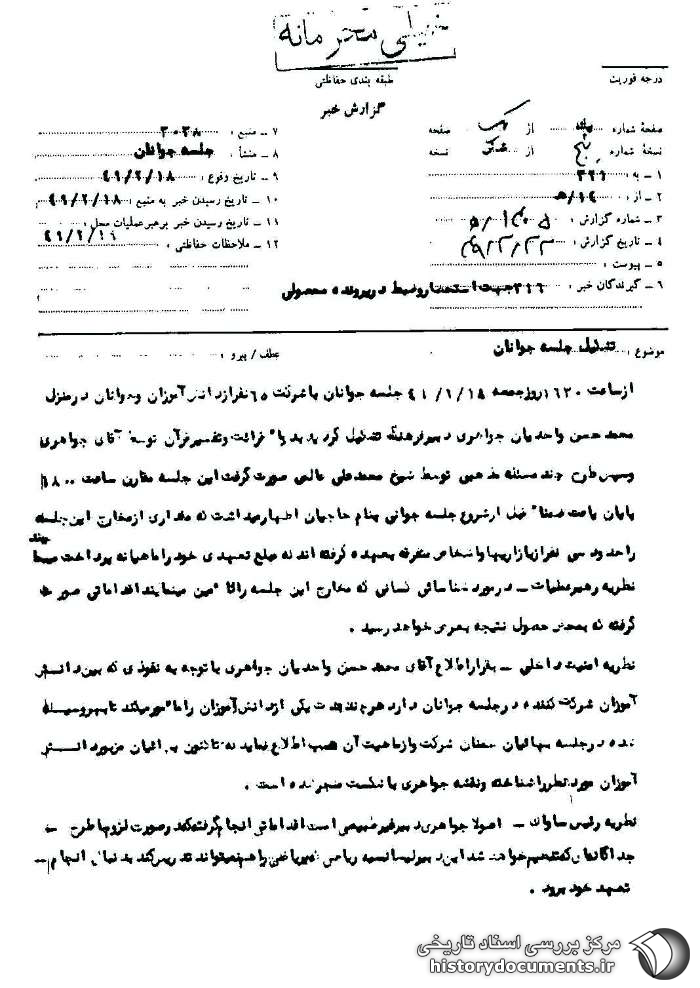 خیلی محرمانه
طبقه بندی حفاظتی
درجه فوریت
گزارش خبر
صفحهٔ شماره یک از یک صفحه
نسخهٔ شماره پنج از شش نسخه
۱ ـ به : ۳۲۱
۲ ـ از : ۱۴/ه
۳ ـ شماره گزارش :
۴ ـ تاریخ گزارش :
۵ ـ پیوست :
۶ ـ گیرندگان خبر : ۳۱۶ جهت استحضار وضبط درپرونده محصولی
۷ ـ منبع : ۳۰۳۸
۸ ـ منشأ : جلسه جوانان
۹ ـ تاریخ وقوع : ۴۹/۲/۱۸
۱۰ ـ تاریخ رسیدن خبر به منبع : ۴۹/۲/۱۸
۱۱ ـ تاریخ رسیدن خبر برهبرعملیات محل : ۴۹/۲/۱۹
۱۲ ـ ملاحظات حفاظتی :
موضوع : تشکیل جلسه جوانان
عطف / پیرو :
ازساعت ۱۶۳۰ روزجمعه ۴۹/۲/۱۸ جلسه جوانان باشرکت ۶۵ نفرازدانش آموزان وجوانان درمنزل
محمد حسن واحدیان جواهری دبیرفرهنگ تشکیل گردید بدوا" قرائت وتفسیرقرآن توسط آقای جواهری
وسپس طرح چند مسئله مذهبی توسط شیخ محمدعلی عالمی صورت گرفت این جلسه مقارن ساعت ۱۸۰۰
پایان یافت ضمنا" قبل ازشروع جلسه جوانی بنام حاجیان اظهارمیداشت که مقداری ازمخارج این جلسه
را حدود سی نفرازبازاریها واشخاص متفرقه بعهده گرفته اند که مبلغ تعهدی خود را ماهیانه پرداخت
نظریه رهبرعملیات ـ درمورد شناسائی کسانی که مخارج این جلسه راتأ مین مینمایند اقداماتی صورت
گرفته که بمحض حصول نتیجه بعرض خواهد رسید .
نظریه امنیت داخلی ـ بقراراطلاع آقای محمد حسن واحدیان جواهری باتوجه به نفوذی که بین دانش
آموزان شرکت کننده درجلسه جوانان دارد هرچند مدت یکی ازدانش آموزان را مأ مورمیکند تابهروسیله
شده درجلسه بهائیان سمنان شرکت وازماهیت آن کسب اطلاع نماید که تاکنون بهائیان مزبور دانش
آموزان مورد نظرراشناخته ونقشه جواهری باشکست منجرشده است .
نظریه رئیس ساواک ـ اصولا جواهری دبیرغیرطبیعی است اقداماتی انجام گرفته که درصورت لزوم باطرح
جداگانه‌ای که تقدیم خواهد شد این دبیرلیسانسیه ریاضی
تعهد خود برود .
مرکز بررسی اسناد تاریخی
historydocuments.ir